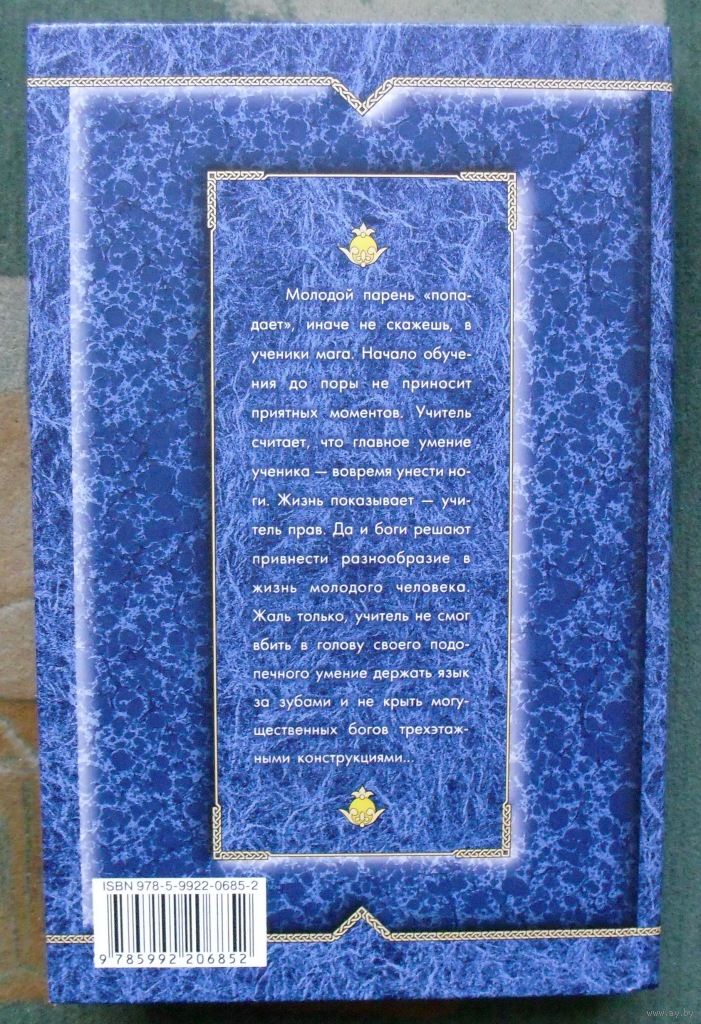 Молодой парень «попа-
дает», иначе не скажешь, в
ученики мага. Начало обуче-
ния до поры не приносит
приятных моментов. Учитель
считает, что главное умение
ученика — вовремя унести но-
ги. Жизнь показывает — учи-
тель прав. Да и боги решают
привнести разнообразие в
жизнь молодого человека.
Жаль только, учитель не смог
вбить в голову своего подо-
печного умение держать язык
за зубами и не крыть могу-
щественных богов трехэтаж-
ными конструкциями...
ISBN 978-5-9922-0685-2
9 785992 206852
www.ay.by